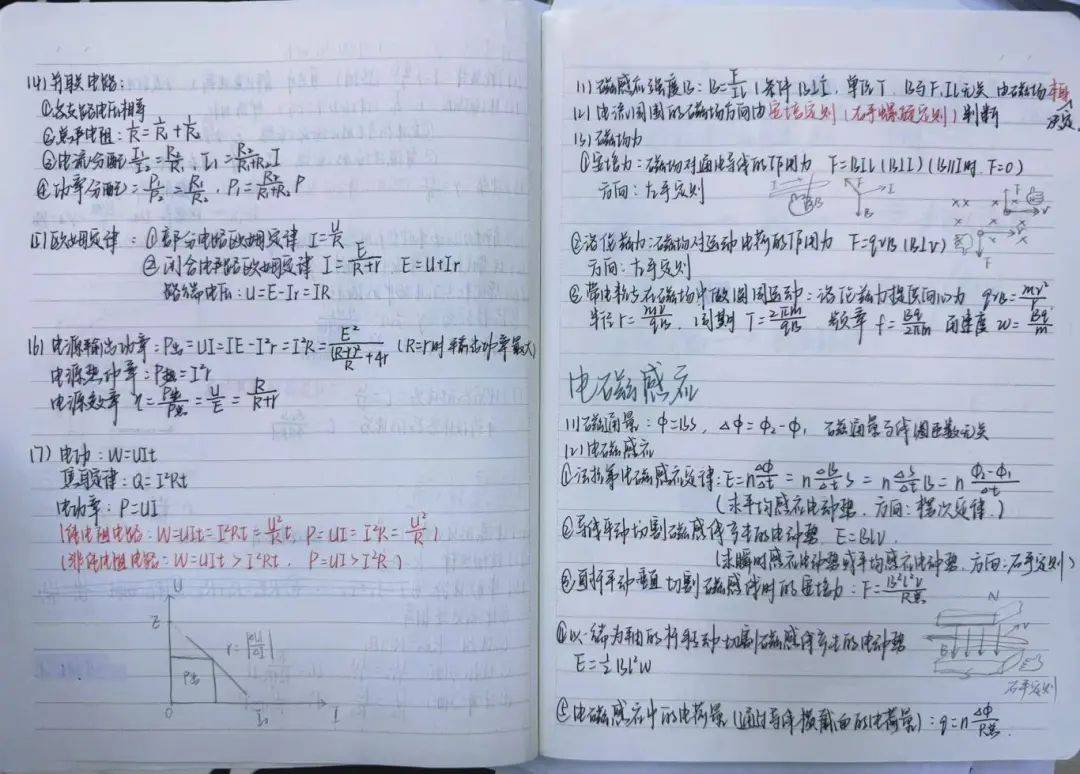 (4) 并联电路:
①各支路电压相等
②总电阻: 1/R = 1/R₁ + 1/R₂
③电流分配 I₁/I₂ = R₂/R₁, I₁ = R₂/(R₁+R₂) I
④功率分配 P₁/P₂ = R₂/R₁, P₁ = R₂/(R₁+R₂) P
(5) 欧姆定律: ①部分电路欧姆定律 I = U/R
②闭合电路欧姆定律 I = E/(R+r) E = U+Ir
路端电压: U = E-Ir = IR
(6) 电源输出功率: P出 = UI = IE-I²r = I²R = E²/((R-r)²/R+4r) (R=r时输出功率最大)
电源热功率: P热 = I²r
电源效率 η = P出/P总 = U/E = R/(R+r)
(7) 电功: W=UIt
焦耳定律: Q=I²Rt
电功率: P=UI
(纯电阻电路: W=UIt=I²Rt=U²/R t, P=UI=I²R=U²/R)
(非纯电阻电路: W=UIt>I²Rt, P=UI>I²R)
U
E
r = |ΔU/ΔI|
P出
0
I
(1) 磁感应强度B: B = F/IL (条件B⊥I, 单位T, B与F、IL无关 由磁场本身决定)
(2) 电流周围的磁场方向由安培定则(右手螺旋定则)判断
(3) 磁场力
①安培力: 磁场对通电导线的作用力 F=BIL (B⊥I) (B∥I时, F=0)
方向: 左手定则
F
I
B
②洛伦兹力: 磁场对运动电荷的作用力 F=qvB (B⊥v)
方向: 左手定则
F
v
F
③带电粒子在磁场中做圆周运动: 洛伦兹力提供向心力 qvB = mv²/r
半径 r = mv/qB, 周期 T = 2πm/qB 频率 f = Bq/2πm 角速度 ω = Bq/m
电磁感应
(1) 磁通量: Φ=BS, ΔΦ=Φ₂-Φ₁ 磁通量与线圈匝数无关
(2) 电磁感应
①法拉第电磁感应定律: E = n ΔΦ/Δt = n ΔB/Δt S = n ΔS/Δt B = n (Φ₂-Φ₁)/Δt
(求平均感应电动势, 方向: 楞次定律)
②导体平动切割磁感线产生的电动势 E=BLv.
(求瞬时感应电动势或平均感应电动势, 方向: 右手定则)
③直杆平动垂直切割磁感线时的安培力: F = B²L²v/R总
N
v
B
E
S
右手定则
④以一端为轴的杆转动切割磁感线产生的电动势
E = ½BL²ω
⑤电磁感应中的电荷量(通过导体横截面的电荷量): q = n ΔΦ/R总.